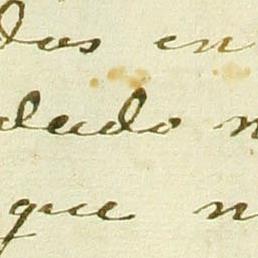 dos en
dado n
que n